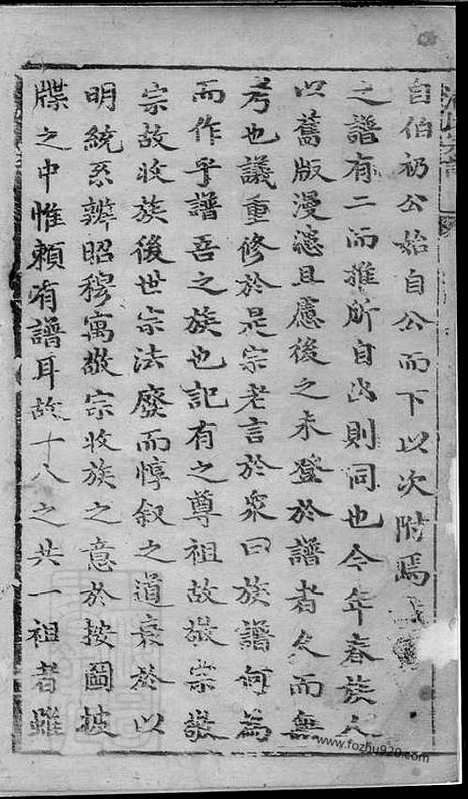 自伯礽公始自公而下以次附焉
之譜有二而推所自出則同也今年春族人
以舊版漫漶且慮後之未登於譜者久而無
考也議重修於是宗老言於衆曰族譜何為
而作乎譜吾之族也記有之尊祖故敬宗敬
宗故收族後世宗法廢而惇叙之道衰於以
明統系辨昭穆寓敬宗收族之意於按圖披
牒之中惟賴有譜耳故十八之共一祖者雖
www.fozhu920.com